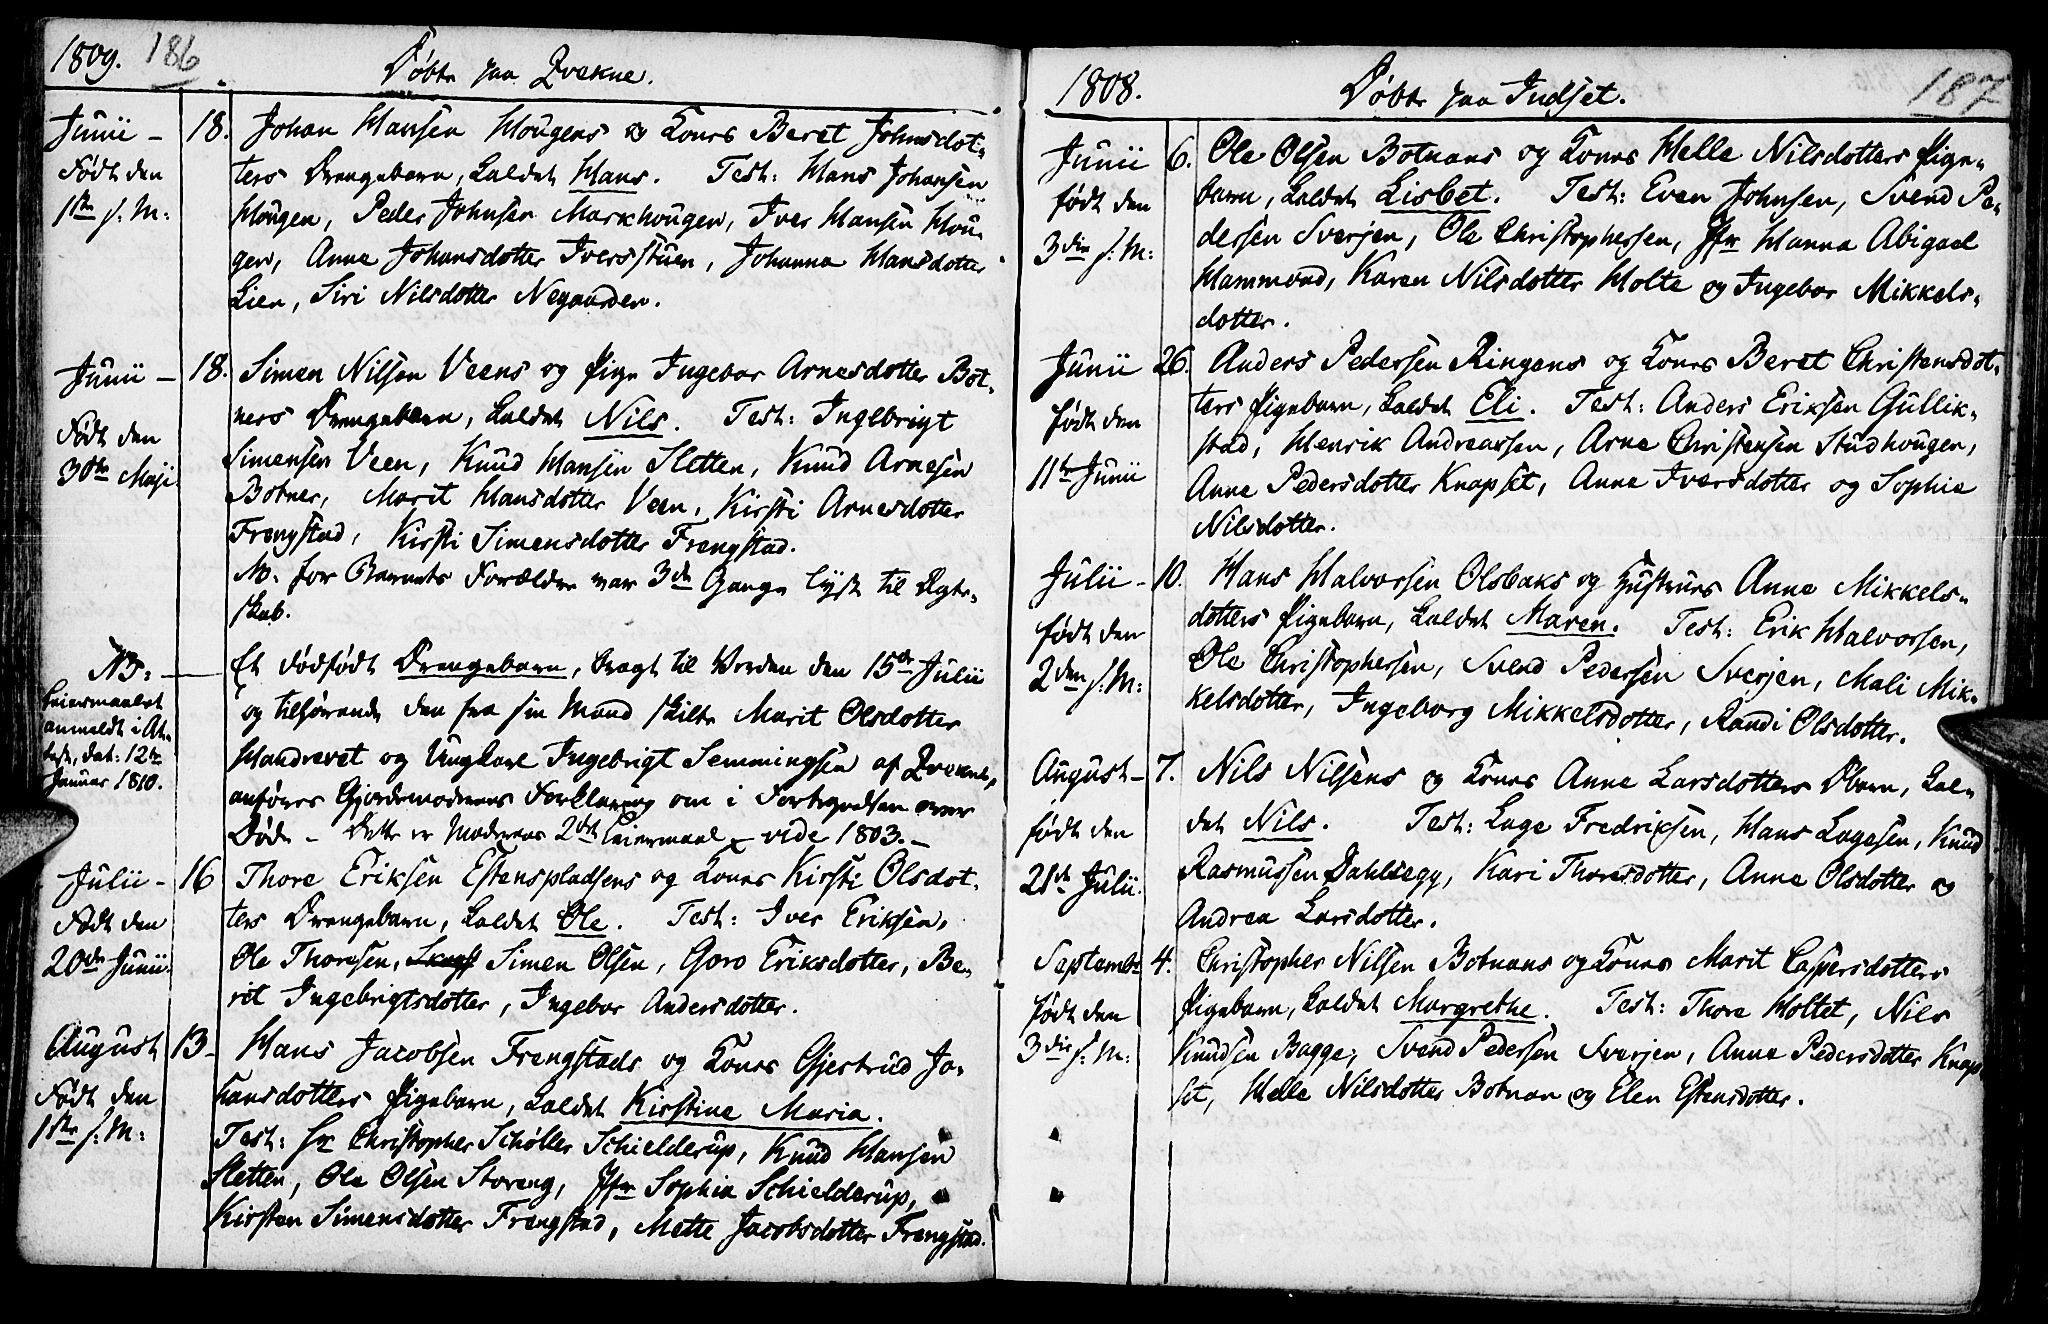 1809. 186
Døbte paa Qvekne.
Junii – 18. Johan Hansen Hougens og Kones Beret Johnsdot-
Født den ters Drengebarn, kaldet Hans. Test: Hans Johansen
1ste s: M: Hougen, Peder Johnsen Markhougen, Iver Hansen Hou-
gen, Anne Johansdotter Iversstuen, Johanna Hansdotter
Lien, Siri Nilsdotter Negaarden.
Junii – 18. Simen Nilsen Veens og Pige Ingebor Arnesdotter Bot-
ners Drengebarn, kaldet Nils. Test: Ingebrigt
Født den Simensen Veen, Knud Hansen Sletten, Knud Arnesen
30te Maji Botner, Marit Hansdotter Veen, Kirsti Arnesdotter
Frengstad, Kirsti Simensdotter Frengstad.
NB. for Barnets Forældre var 3de Gange lyst til Ægte-
skab.
NB: — Et dødfødt Drengebarn, bragt til Jorden den 15de Julii
Leiermaalet og tilhørende den fra sin Mand skilte Marit Olsdotter
anmeldt i At- Handrevet og Ungkarl Ingebrigt Semmingsen af Qvekne,
test, dat: 12te anføres Gjordemodrens Forklaring om i Fortegnelsen over
Januar 1810. Døde – Dette er Moderens 2det Leiermaal – vide 1803. –
Julii – 16 Thore Eriksen Estenspladsens og Kones Kirsti Olsdot-
Født den ters Drengebarn, kaldet Ole. Test: Iver Eriksen,
20de Junii. Ole Thoresen, Simen Olsen, Goro Eriksdotter, Be-
rit Ingebrigtsdotter, Ingebor Andersdotter.
August 13 – Hans Jacobsen Frengstads og Kones Gjertrud Jo-
Født den hansdotters Pigebarn, kaldet Kirstine Maria.
1ste s: M: Test: Hr Christopher Schøller Schielderup, Knud Hansen
Sletten, Ole Olsen Storeng, Jfr Sophia Schielderup,
Kirsten Simensdotter Frengstad, Mette Jacobsdotter Frengstad.
1808. 187
Døbte paa Indset.
Junii 6. Ole Olsen Botnans og Kones Helle Nilsdotters Pige-
født den barn, kaldet Lisbet. Test: Even Johnsen, Svend Pe-
3die s: M: dersen Sverjen, Ole Christophersen, Jfr Hanna Abigael
Hammond, Karen Nilsdotter Holte og Ingebor Mikkels-
dotter.
Junii 26. Anders Pedersen Ringens og Kones Beret Christensdot-
født den ters Pigebarn, kaldet Eli. Test: Anders Eriksen Gullik-
stad, Henrik Andreassen, Arne Christensen Studhougen,
11te Junii Anne Pedersdotter Knapset, Anne Iversdotter og Sophie
Nilsdotter.
Julii – 10. Hans Halvorsen Olsbaks og Hustrues Anne Mikkels-
født den dotters Pigebarn, kaldet Maren. Test: Erik Halvorsen,
2den s: M: Ole Christophersen, Svend Pedersen Sverjen, Mali Mik-
kelsdotter, Ingeborg Mikkelsdotter, Randi Olsdotter.
August – 7. Nils Nilsens og Kones Anne Larsdotters Dbarn, kal-
født den det Nils. Test: Lage Fredriksen, Hans Lagesen, Knud
21de Julii. Rasmussen Dahlsegg, Kari Thoresdotter, Anne Olsdotter og
Andrea Larsdotter.
Septembr 4. Christopher Nilsen Botnans og Kones Marit Caspersdotters
født den Pigebarn, kaldet Margrethe. Test: Thore Holtet, Nils
3die s: M: Knudsen Bagge, Svend Pedersen Sverjen, Anne Pedersdotter Knap-
set, Helle Nilsdotter Botnan og Elen Estensdotter.